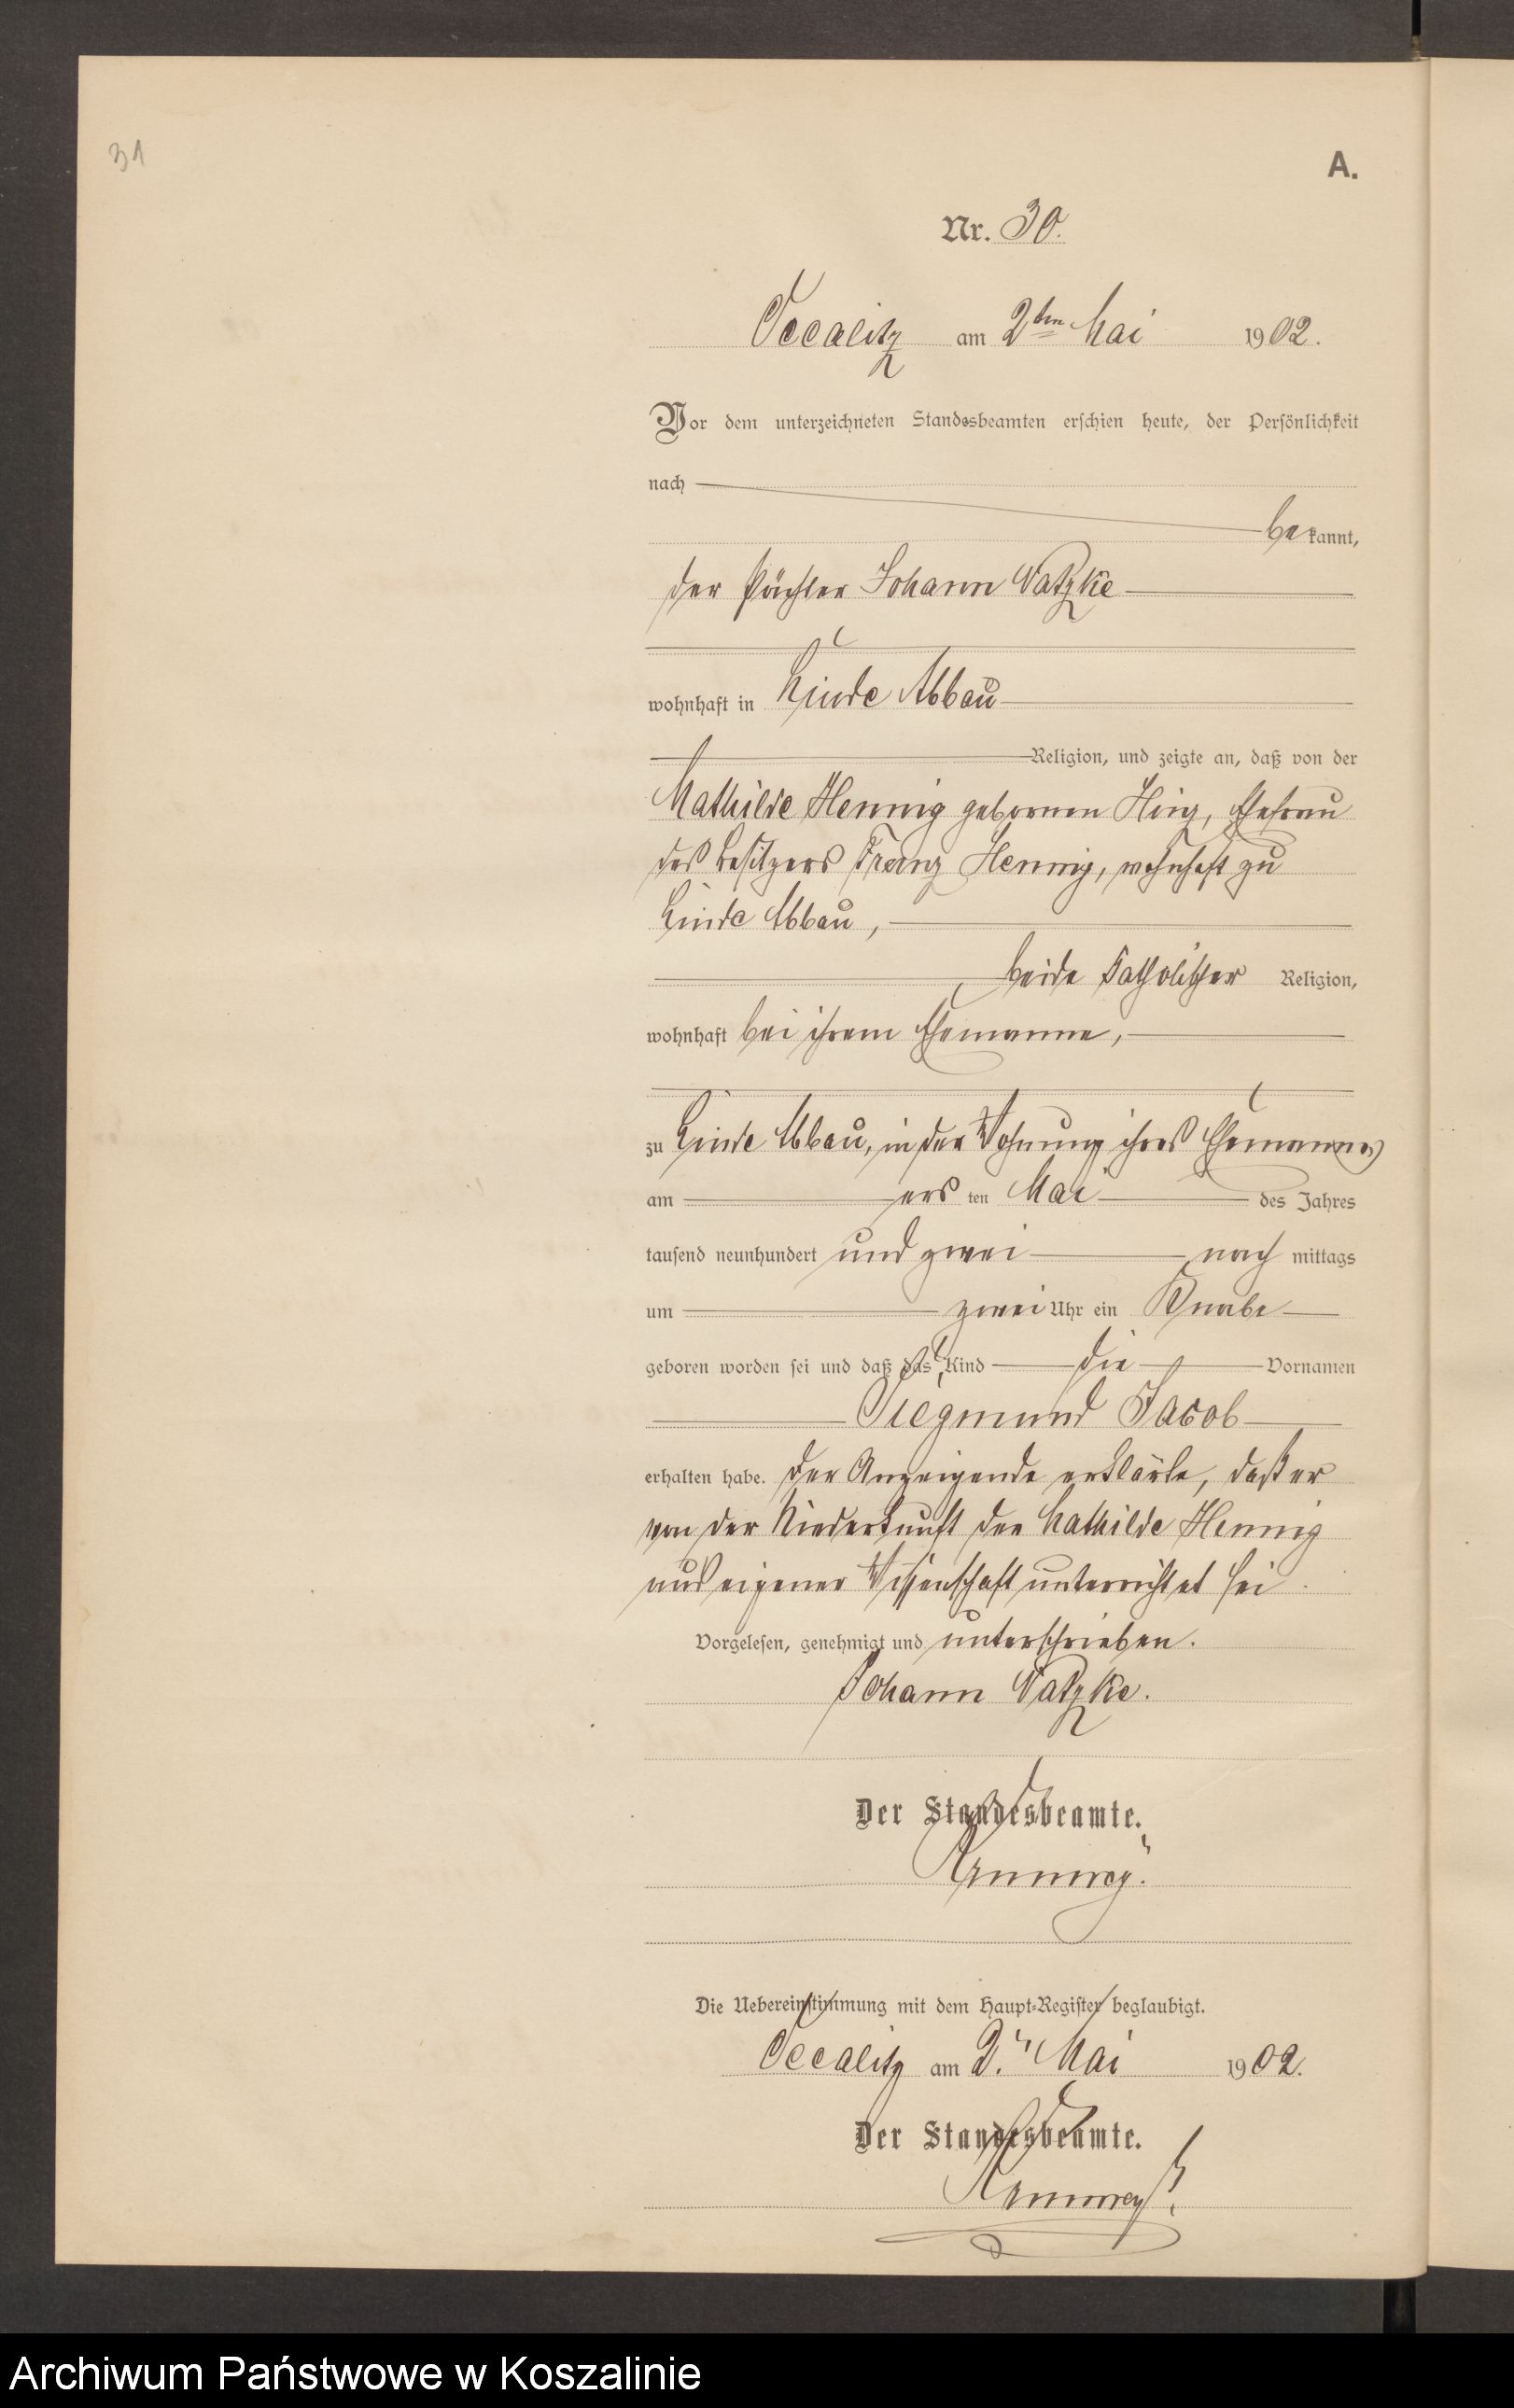 31
A.
Nr. 30.
Occalitz am 2ten Mai 1902.
Vor dem unterzeichneten Standesbeamten erschien heute, der Persönlichkeit
nach
bekannt,
der Pächter Johann Vatzke
wohnhaft in Linde Abbau
Religion, und zeigte an, daß von der
Mathilde Hennig gebornen Hinz, Ehefrau
des Besitzers Franz Hennig, wohnhaft zu
Linde Abbau,
beide katholischer Religion,
wohnhaft bei ihrem Ehemanne,
zu Linde Abbau, in der Wohnung ihres Ehemannes
am ersten Mai des Jahres
tausend neunhundert und zwei nachmittags
um zwei Uhr ein Knabe
geboren worden sei und daß das Kind die Vornamen
Siegmund Jacob
erhalten habe. Der Anzeigende erklärte, daß er
von der Niederkunft der Mathilde Hennig
aus eigener Wissenschaft unterrichtet sei.
Vorgelesen, genehmigt und unterschrieben.
Johann Vatzke.
Der Standesbeamte.
Die Uebereinstimmung mit dem Haupt-Register beglaubigt.
Occalitz am 2. Mai 1902.
Der Standesbeamte.
Archiwum Państwowe w Koszalinie